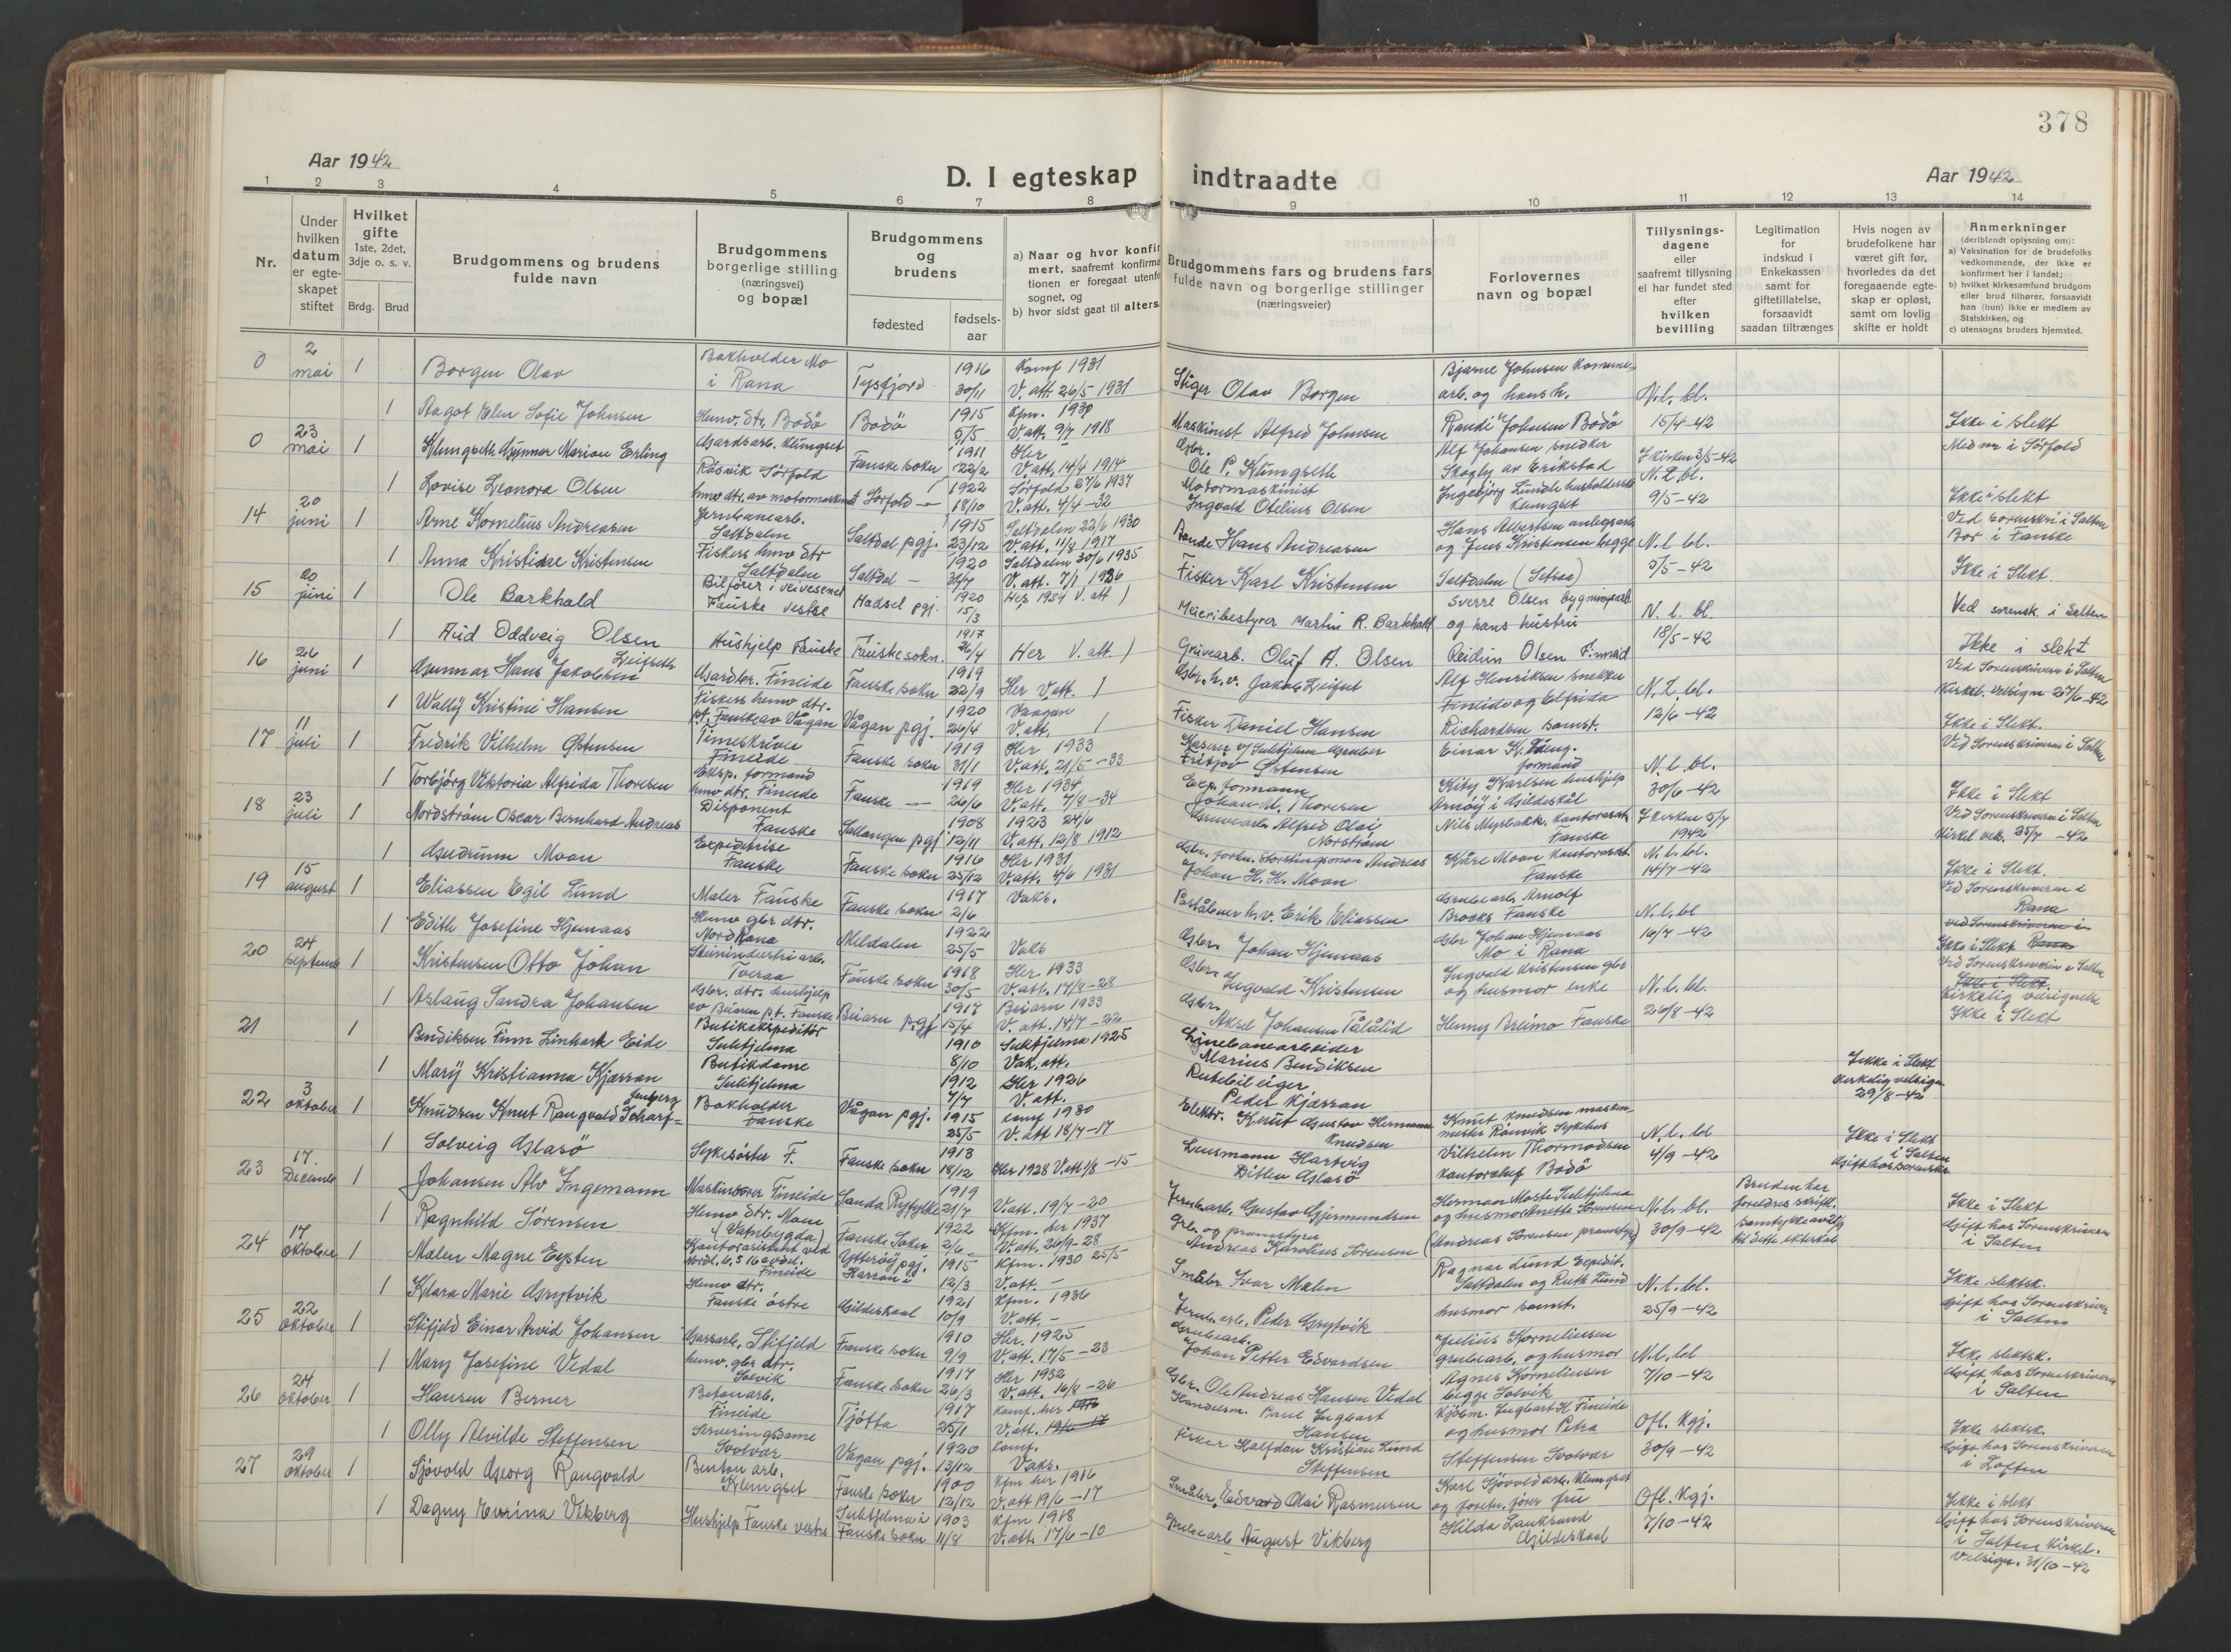 378
Aar 1942
D. I egteskap indtraadte
Aar 1942
1 2 3 4 5 6 7 8 9 10 11 12 13 14
Nr.
Under hvilken datum er egteskapet stiftet
Hvilket gifte
1ste, 2det, 3dje o. s. v.
Brdg. Brud
Brudgommens og brudens fulde navn
Brudgommens borgerlige stilling (næringsvei) og bopæl
Brudgommens og brudens
fødested
fødselsaar
a) Naar og hvor konfirmert, saafremt konfirma
tionen er foregaat utenfo
sognet, og
b) hvor sidst gaat til alters.
Brudgommens fars og brudens fars
fulde navn og borgerlige stillinger
(næringsveier)
Forlovernes navn og bopæl
Tillysningsdagene eller saafremt tillysning ei har fundet sted efter hvilken bevilling
Legitimation for indskud i Enkekassen samt for giftetillatelse, forsaavidt saadan tiltrænges
Hvis nogen av brudefolkene har været gift før, hvorledes da det foregaaende egteskap er opløst, samt om lovlig skifte er holdt
Anmerkninger
(deriblendt oplysning om):
a) Vaksination for de brudefolks vedkommende, der ikke er konfirmert her i landet;
b) hvilket kirkesamfund brudgom eller brud tilhører, forsaavidt han (hun) ikke er medlem av Statskirken, og
c) utensogns bruders hjemsted.
0 2 mai 1 Borgen Olav Bokholder Mo i Rana Tysfjord 1916 30/11 Konf 1931 V. att. 26/5 1931 Stiger Olav Borgen Bjarne Johnsen Kommunearb. og hans h. N.l. bl.
1 Aagot Elen Sofie Johnsen Hemv. dtr. Bodö Bodö 1915 5/5 Kfm. 1930 V. att. 9/7 1918 Maskinist Alfred Johnsen Randi Johnsen Bodö 15/4-42 Ikke i slekt
0 23 mai 1 Klungseth Gunnar Marion Erling Gardsarb. Klungset Fauske sokn 1911 22/2 Her V. att. 14/4 1914 Gbr. Ole P. Klungseth Alf Johansen snedker Skogly av Erikstad I kirken 3/5-42 N.l. bl.
1 Lovise Leonora Olsen Råsvik Sørfold hmv dtr. av motormaskinist Sörfold 1922 18/10 Sörfold 27/6 1937 V. att. 4/4-32 Motormaskinist Ingvald Otelius Olsen Klungset 9/5-42 Ikke i slekt
14 20 juni 1 Arne Kornelius Andreasen Jernbanearb. Saltdalen Saltdal pgj. 1915 23/12 Saltdalen 22/6 1930 V. att. 11/8 1917 Bonde Hans Andreasen Hans Albertsen anlegsarb og Jens Kristensen begge N.l bl. Ved sorenskri i Salten Bor i Fauske
1 Anna Kristine Kristensen Fiskers hmv dtr Saltdalen Saltdal 1920 Saltdalen 30/6 1935 V. att. 7/1 1926 Fisker Karl Kristensen Saltdalen (Setraa) 5/5-42 Ikke i Slekt.
15 20 juni 1 Ole Barkhald Bilförer i veivesenet Fauske vestre Hadsel pgj. 1920 15/3 Her 1934 V. att Meieribestyrer Martin R. Barkhald Sverre Olsen bygningsarb og hans hustru N. l. bl. Ved sorensk. i Salten
1 Aud Oddveig Olsen Hushjelp Fauske Fauske sokn. 1917 26/4 Her V. att. Gruvearb. Oluf A. Olsen Reidun Olsen Finneid 18/5-42 Ikke i slekt
16 26 juni 1 Gunnar Hans Jakobsen Leifseth Gardbr. Fineide Fauske sokn 1919 22/9 Her V. att. Gbr. h. v. Jakob Leifset Alf Henriksen snekker N.l. bl. Ved Sorenskriveren i Salten Kirkel. velsign 27/6-42
1 Wally Kristine Hansen Fiskers hmv dtr. pt. Fauske av Vågan Vågan pgj. 1920 26/4 Vaagan V. att. Fisker Daniel Hansen Fineide og Elfrida Richardsen samst. 12/6-42 Ikke i Slekt.
17 11 juli 1 Fredrik Vilhelm Østensen Timeskriver Fineide Fauske sokn 1919 31/1 Her 1933 V. att. 21/5-33 Kaserer v/ Sulitjelma Gruber Fritjov Østensen formand N.l. bl. Ved Sorenskriveren i Salten
1 Torbjörg Viktoria Alfrida Thoresen Eksp. formand hmv dtr. Fineide Fauske 1919 26/6 Her 1934 V. att. 7/8-34 Exp. formann Johan M. Thoresen Kity Karlsen hushjelp Arnöy i Gildeskål 30/6-42 Ikke i Slekt
18 23 juli 1 Nordström Oscar Bernhard Andreas Disponent Fauske Sallangen pgj 1908 12/11 1923 24/6 V. att. 12/8 1912 Gruvearb. Alfred Olai Norström Nils Myrbakk, kontorassist. Fauske I kirken 5/7 1942 N.l. bl. Ved Sorenskriveren i Salten Kirkel vels. 25/7-42
1 Gudrunn Moan Expeditrise Fauske Fauske sokn 1916 25/12 Her 1931 V. att. 4/6 1931 Gbr. forhn. Stortingsman Andreas Johan H. H. Moan Kåre Moan kontorassist. Fauske 14/7-42 Ikke i Slekt.
19 15 august 1 Eliassen Egil Lund Maler Fauske Fauske sokn 1917 2/6 Vaks. Poståbner h. v. Erik Eliassen Grubearb. Arnolf Brocks Fauske N.l. bl Ved Sorenskriveren i Rana
1 Edith Josefine Hjemaas Hemv gbr dtr. Nord Rana Meldalen 1922 25/5 Vaks Gbr. Johan Hjemaas Gbr Johan Hjemaas Mo i Rana 16/7-42 Ikke i Slekt
20 24 septembr 1 Kristensen Otto Johan Steinindustri arb. Tveraa Fauske sokn 1918 30/5 Her 1933 V. att. 17/8-28 Gbr. Ingvald Kristensen Ingvald Kristensen gbr og husmor enke N.l. bl. Ved Sorenskriveren i Salten Kirkelig velsignelse
1 Aslaug Sandra Johansen Gbr. dtr. hushjelp av Beiaren p.t. Fauske Beiarn pgj 1917 15/4 Beiarn 1933 V. att. 14/7-22 Gbr. Aksel Johansen Tålålid Henny Breimo Fauske 26/8-42 Ikke i Slekt
21 1 Bendiksen Finn Linhart Eide Butikekspeditör Sulitjelma 1910 8/10 Sulitjelma 1925 Vak. att. Linebanearbeider Marius Bendiksen
1 Mary Kristianna Kjærran Butikdame Sulitjelma 1912 7/7 Her 1926 V. att. Rutebileiger Peder Kjærran Ikke i Slekt Kirkelig velsign 29/8-42
22 3 oktober 1 Knudsen Knut Rangvald Scharf= Bokholder Fauske Vågan pgj. 1915 25/5 Konf 1930 V. att 18/7-17 Elektr. Knut Gustav Hermann Knudsen Knut Knudsen maskinmester Rönvik Sykehus N.l. bl Ikke i Slekt
1 Solveig Glasö Sykesöster F. Fauske sokn 1913 18/12 Her 1928 V. att 1/8-15 Lensmann Hartvig Ditlev Glasö Vilhelm Thormodsen kontorchef Bodö 4/9-42 i Salten Gift hos Sorenskr
23 17. December 1 Johansen Alv Ingemann Maskinkører Fineide Sanda Ryfylke 1919 21/7 V. att. 19/7-20 Jernbarb. Gustav Gjermundsen Herman Moste Sulitjelma og husmor Anette Sörensen N.l. bl. Bruden har foreldres skriftl. samtykke Ikke i Slekt
1 Ragnhild Sörensen Hemv dtr. Moen (Vatnbygda) Fauske Sokn 1922 2/6 Kfm. her 1937 V. att. 26/9-28 Gbr. og pramstyrer Andreas Karolius Sörensen (Andreas Sörensen pramstyr) 30/9-42 til dette ekteskab Gift hos Sorenskriveren i Salten
24 17 Oktober 1 Mælen Magne Eysten Kontorassistent ved Nordl. b. § 16 avdel. Fineide Ytteröy pgj. 1915 12/3 Kfm. 1930 25/5 V. att. - Småbr Ivar Mælen Ragnar Lund Expedit. Saltdalen og Ruth Lund N.l. bl. Ikke slektsk.
1 Klara Marie Grytvik Hemv dtr. Fauske östre Gildeskaal 1921 10/9 Kfm. 1936 V. att. - Jernb. arb. Peder Grytvik husmor samst. 25/9-42 Gift hos Sorenskriver i Salten
25 22 Oktober 1 Stifjeld Einar Arvid Johansen Gardsarb. Stifjeld Fauske sokn 1910 9/9 Her. 1925 V. att. 17/5-23 Grubearb. Johan Petter Edvardsen Julius Korneliusen grubearb. og husmor N.l. bl Ikke slektsk.
1 Mary Josefine Vedal hmv. gbr dtr. Solvik Fauske sokn 1917 26/3 Her 1932 V. att. 16/8-26 Gbr. Ole Andreas Hansen Vedal Agnes Korneliusen begge Solvik 7/10-42 Gift hos Sorenskriveren i Salten
26 24 Oktober 1 Hansen Berner Betonarb. Fineide Tjötta 1917 25/1 Konf. her V. att. Handelsm. Paul Ingbart Hansen Kjöbm. Ingbart H. Fineide og husmor Petra Ofl. Kgj. Ikke slektsk.
1 Olly Alvilde Steffensen Serveringsdame Svolvær Vågan pgj. 1920 13/12 Konf. Vaks. Fisker Halfdan Kristian Lund Steffensen Steffensen Svolvær 30/9-42 Gift hos Sorenskriveren i Lofoten
27 29 Oktober 1 Sjövold Georg Rangvald Benton arb. Klungset Fauske sokn 1900 12/12 Kfm her 1916 V. att 19/6-17 Småbr. Edvard Olai Rasmusen Karl Sjövold arb. Klungset og forretn. förer fru Ofl. Kgj. Ikke i slekt
1 Dagny Eurina Vikberg Hushjelp Fauske vestre Sulitjelma i Fauske sokn 1903 11/8 Kfm 1918 V. att. 17/6-10 Grubearb August Vikberg Hilda Lauksund Gildeskaal 7/10-42 Gift hos Sorenskriveren i Salten Kirkel. Velsign. 31/10-42